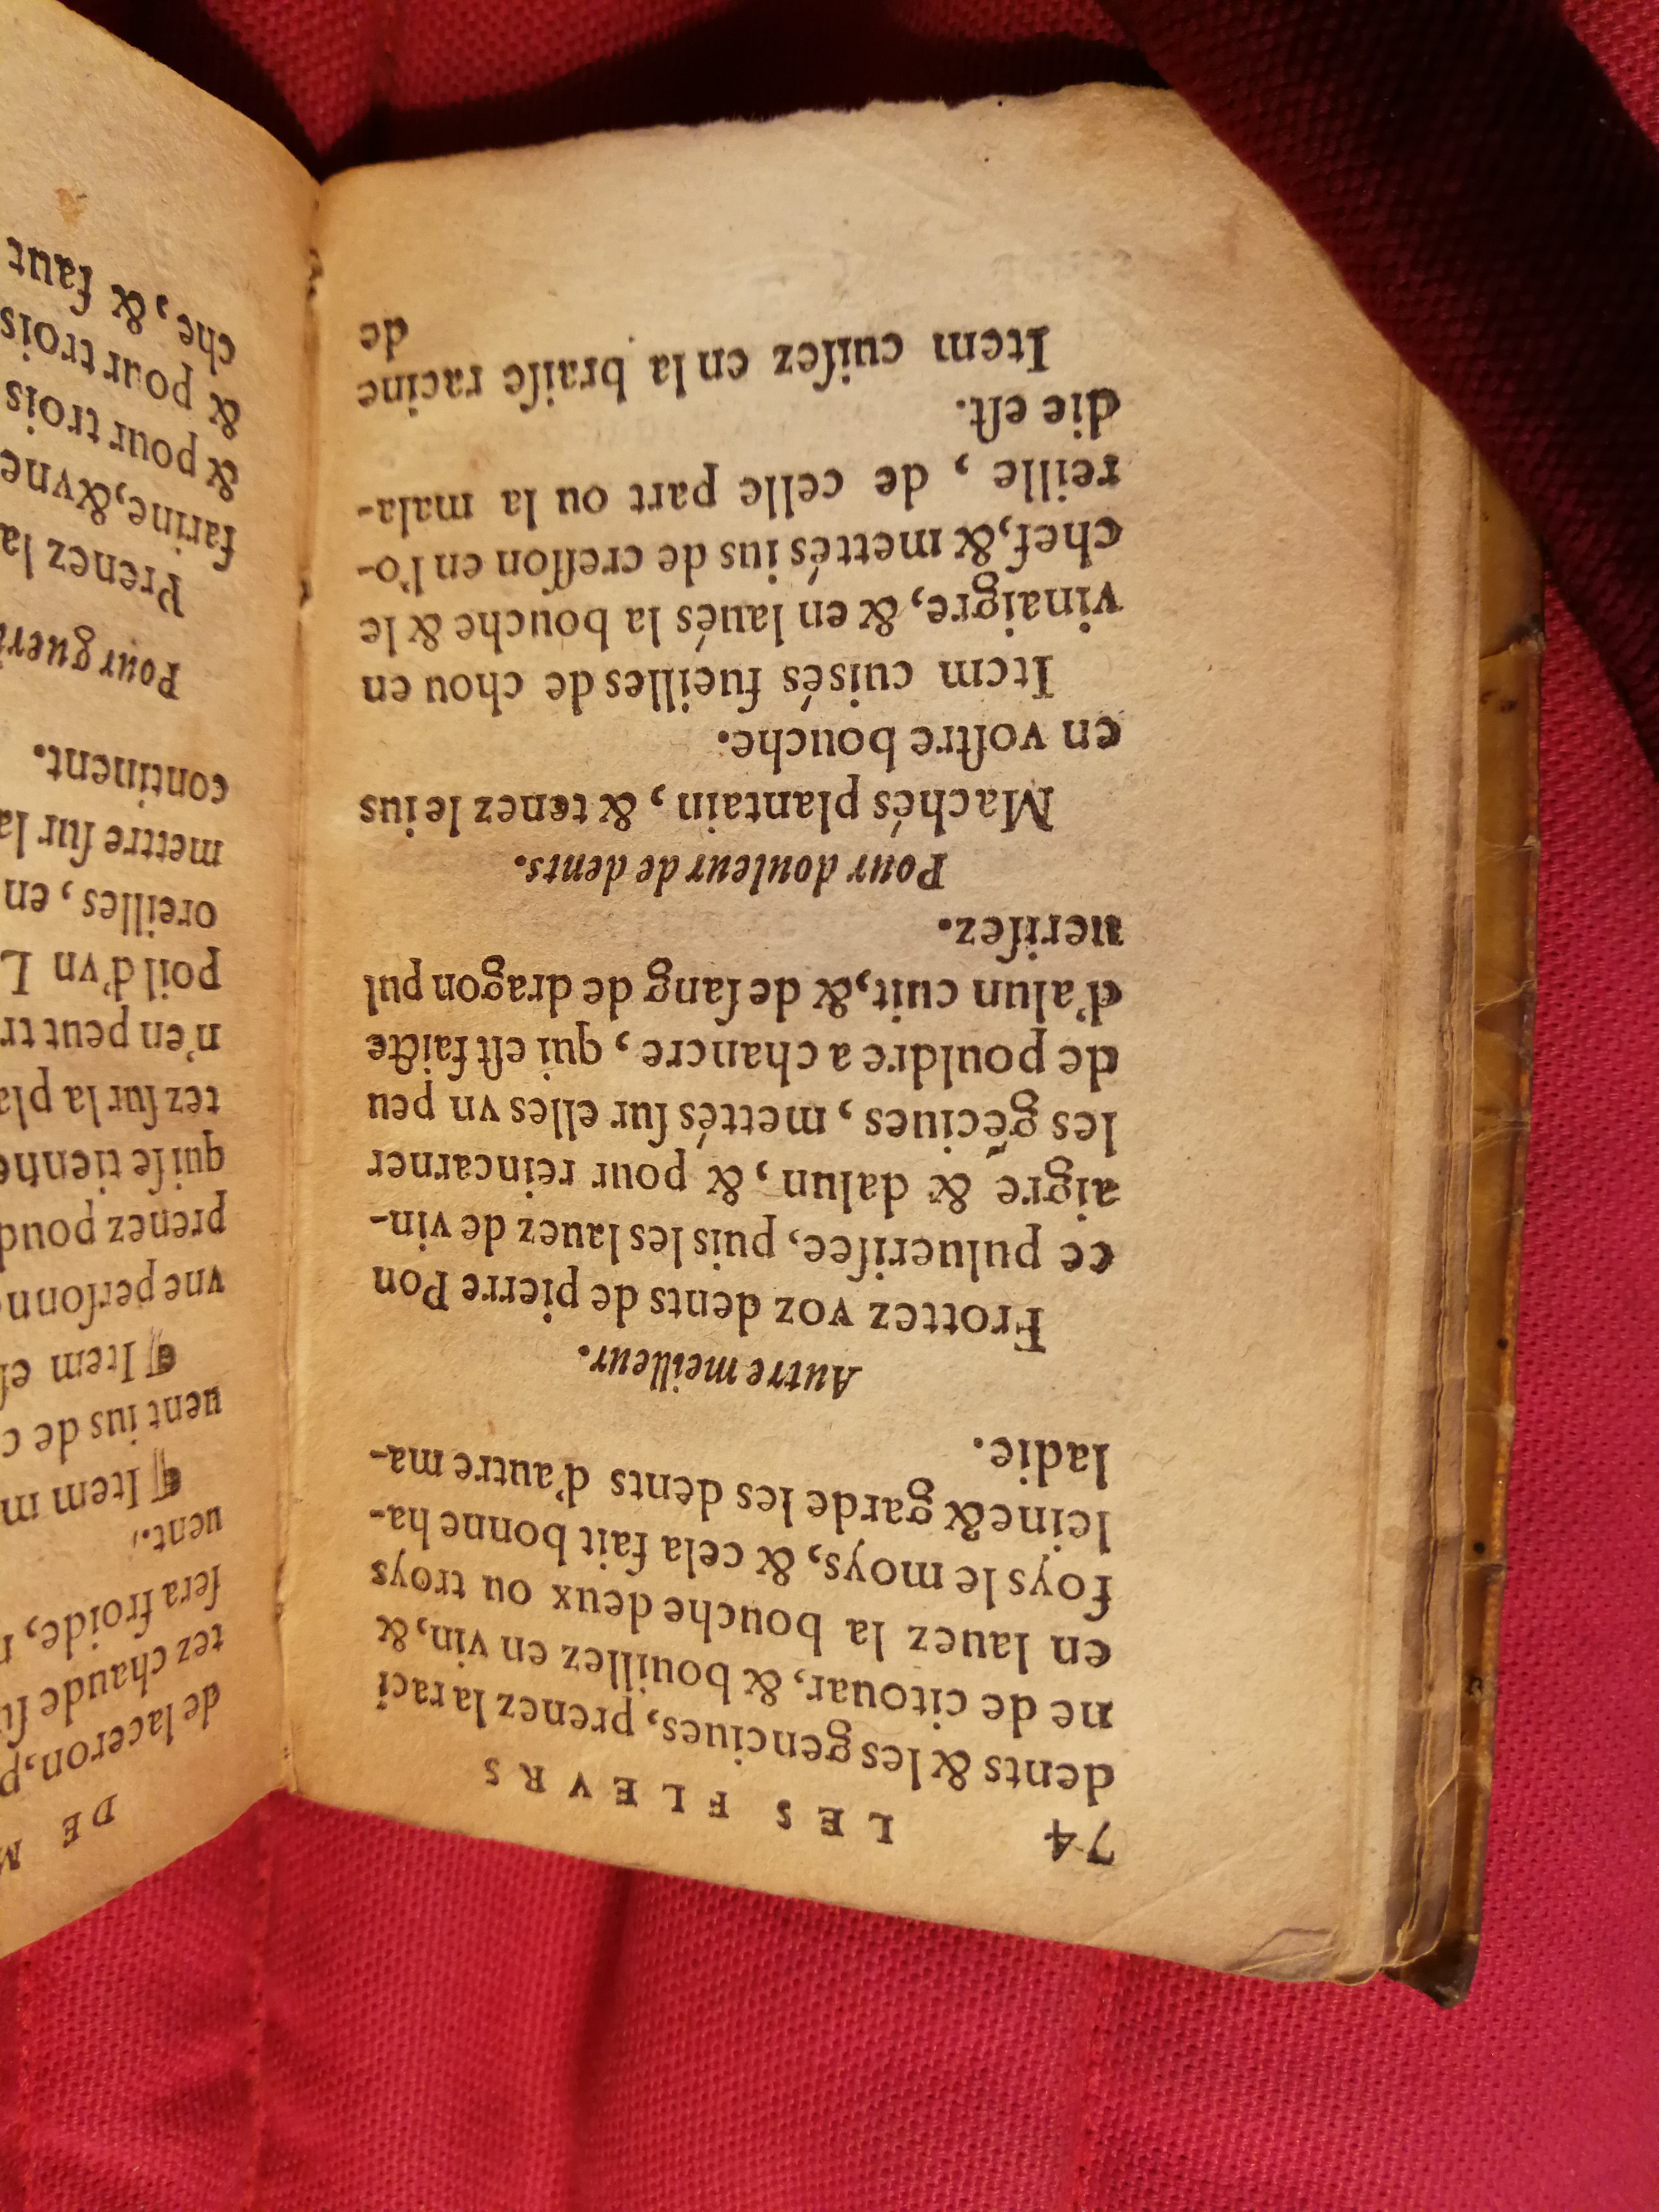 74 LES FLEVRS
dents & les genciues, prenez la raci
ne de citouar, & bouillez en vin, &
en lauez la bouche deux ou troys
foys le moys, & cela fait bonne ha-
leine & garde les dents d'autre ma-
ladie.
Autre meilleur.
Frottez voz dents de pierre Pon
ce puluerisee, puis les lauez de vin-
aigre & dalun, & pour reincarner
les gẽciues, mettés sur elles vn peu
de pouldre a chancre, qui est faicte
d'alun cuit, & de sang de dragon pul
uerisez.
Pour douleur de dents.
Machés plantain, & tenez le ius
en vostre bouche.
Item cuisés fueilles de chou en
vinaigre, & en laués la bouche & le
chef, & mettés ius de cresson en l'o-
reille, de celle part ou la mala-
die est.
Item cuisez en la braise racine
de
DE M
de laceron, p
tez chaude su
sera froide, r
uent.
¶ Item m
uent ius de c
¶ Item es
vne personn
prenez poud
qui se tienne
tez sur la pla
n'en peut tr
poil d'vn L
oreilles, en
mettre sur la
continent.
Pour gueri
Prenez la
farine, & vne
& pour trois
& pour trois
che, & faut